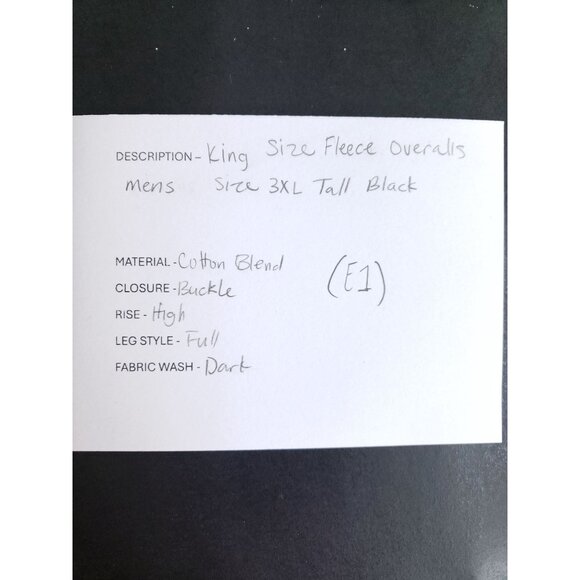 DESCRIPTION - King Size Fleece Overalls
Mens Size 3XL Tall Black
MATERIAL - Cotton Blend
(E1)
CLOSURE - Buckle
RISE - High
LEG STYLE - Full
FABRIC WASH - Dark